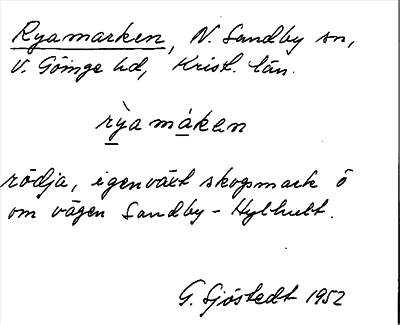 Ryamarken, N. Sandby sn,
V. Göinge hd, Krist. län.
rỳa máken
rödja, igenväxt skogsmark ö
om vägen Sandby - Hylhult.
G. Sjöstedt 1952